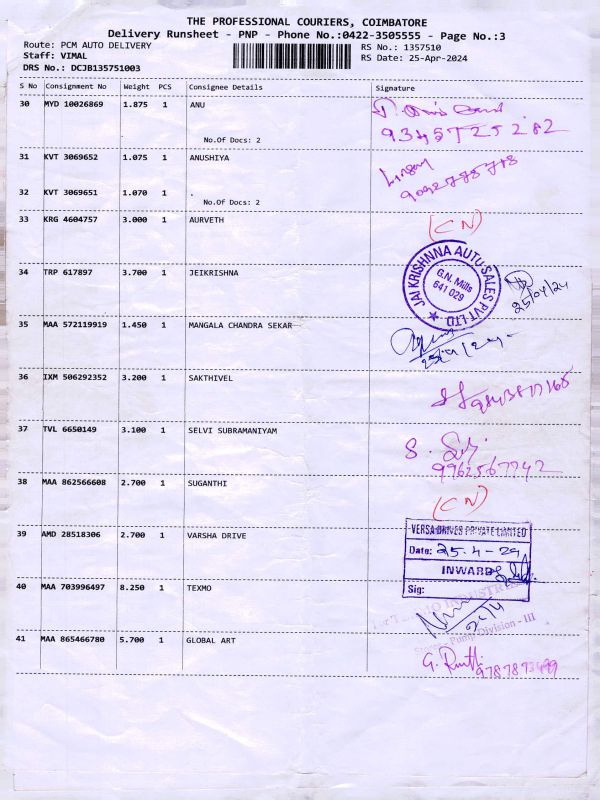 THE PROFESSIONAL COURIERS, COIMBATORE
Delivery Runsheet - PNP - Phone No.:0422-3505555 - Page No.:3
Route: PCM AUTO DELIVERY RS No.: 1357510
Staff: VIMAL RS Date: 25-Apr-2024
DRS No.: DCJB135751003
S No Consignment No Weight PCS Consignee Details Signature
30 MYD 10026869 1.875 1 ANU
No.Of Docs: 2
31 KVT 3069652 1.075 1 ANUSHIYA
32 KVT 3069651 1.070 1 .
No.Of Docs: 2
33 KRG 4604757 3.000 1 AURVETH (CN)
34 TRP 617897 3.700 1 JEIKRISHNA
JAI KRISHNNA AUTO SALES PVT LTD
G.N. Mills
641 029
25/04/24
35 MAA 572119919 1.450 1 MANGALA CHANDRA SEKAR
36 IXM 506292352 3.200 1 SAKTHIVEL
37 TVL 6650149 3.100 1 SELVI SUBRAMANIYAM
9962567742
38 MAA 862566608 2.700 1 SUGANTHI (CN)
39 AMD 28518306 2.700 1 VARSHA DRIVE
VERSA DRIVES PRIVATE LIMITED
Date: 25-4-24
INWARD
Sig:
40 MAA 703996497 8.250 1 TEXMO
Pump Division - III
41 MAA 865466780 5.700 1 GLOBAL ART